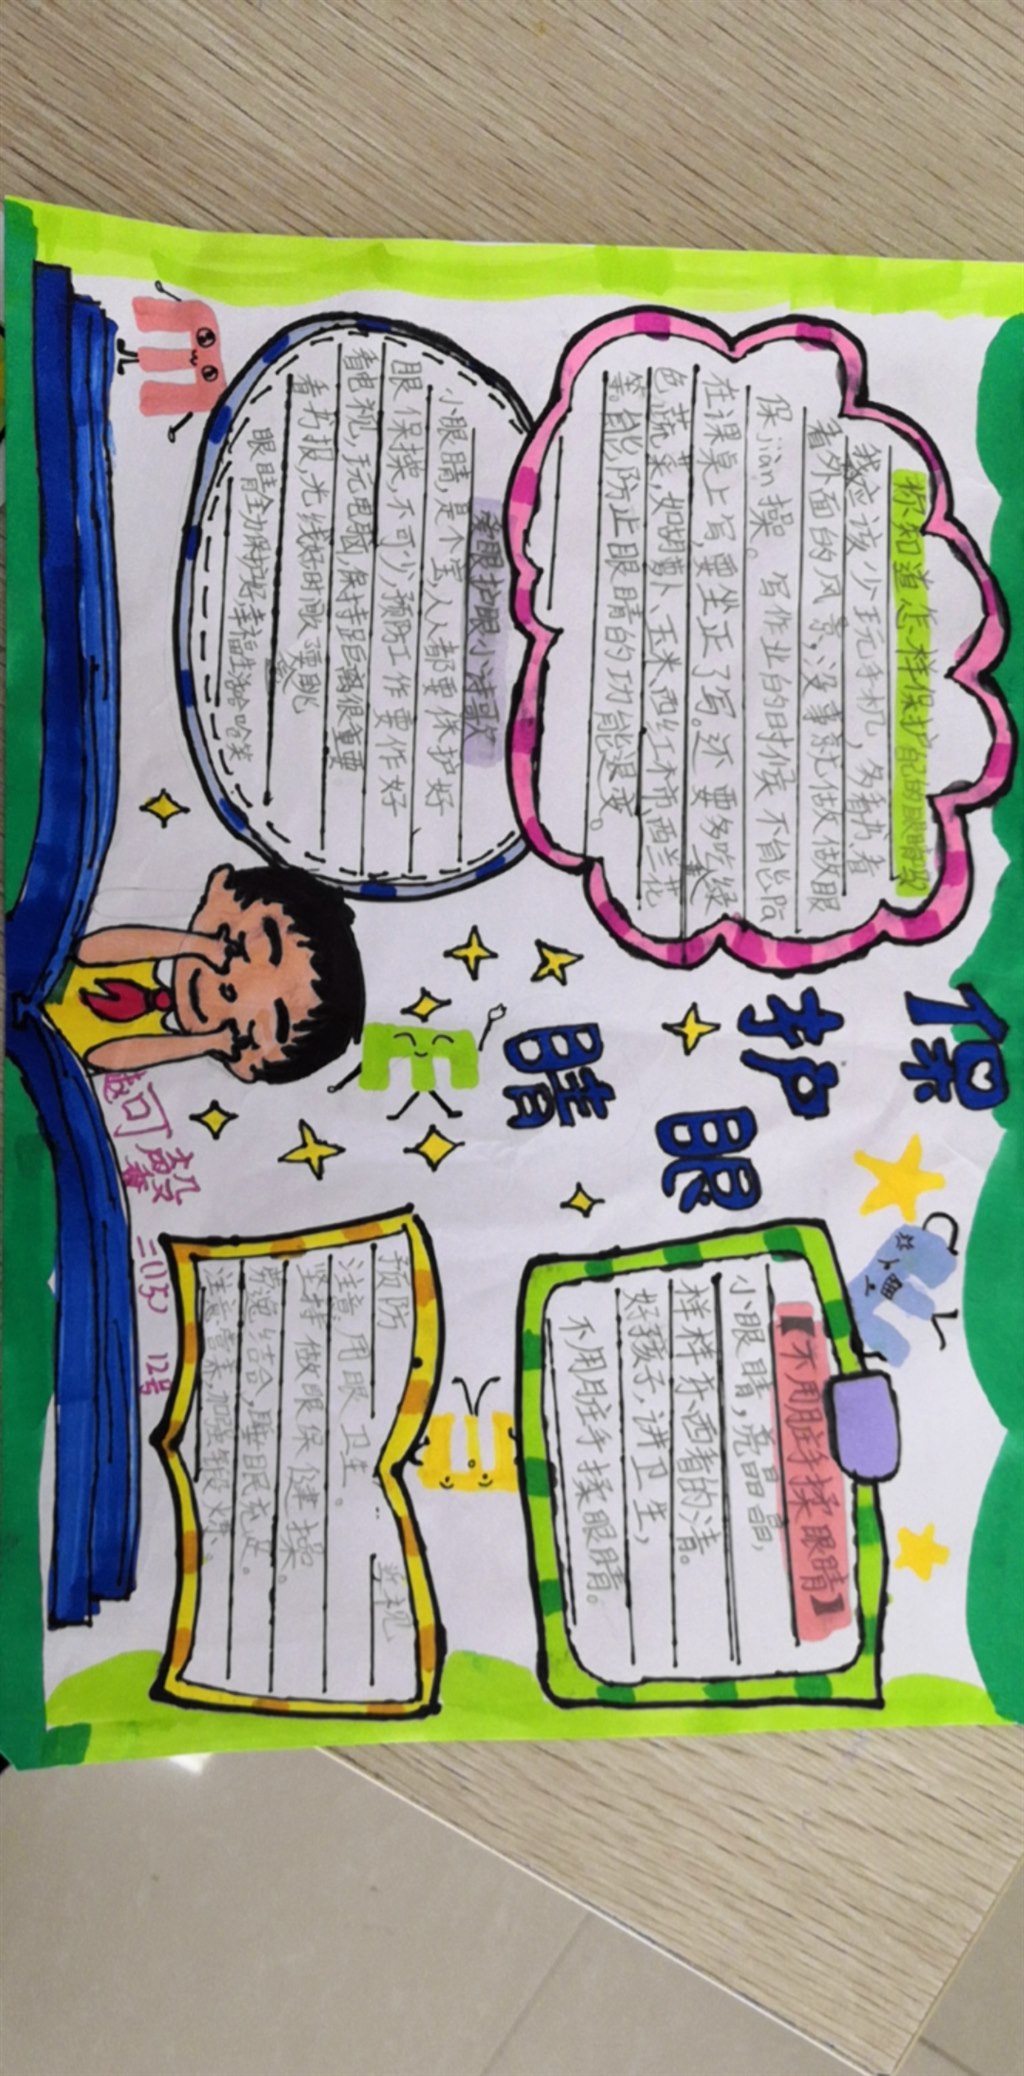 保护眼睛
你知道怎样保护自己的眼睛吗
我应该少玩手机,多看书着
看外面的风景,没事就做做眼
保jian操。写作业的时候不自能趴
在课桌上写,要坐正了写。还要多吃绿
色蔬菜,如胡萝卜、玉米、西红柿、西兰花
等。能防止眼睛的功能退变。
爱眼护眼小诗歌
小眼睛,是个宝,人人都要保护好
眼保操,不可少,预防工作要作好
看电视,玩电脑,保持距离很重要
看书报,光线好,时间歇要眺
眼睛全力保护好幸福生活哈哈笑
【不用脏手揉眼睛】
小眼睛,亮晶晶,
样样东西看的清。
好孩子,讲卫生,
不用脏手揉眼睛。
预防近视
注意用眼卫生。
坚持做眼保健操。
劳逸结合,睡眠充足。
注意营养,加强锻炼。
二(15) 12号